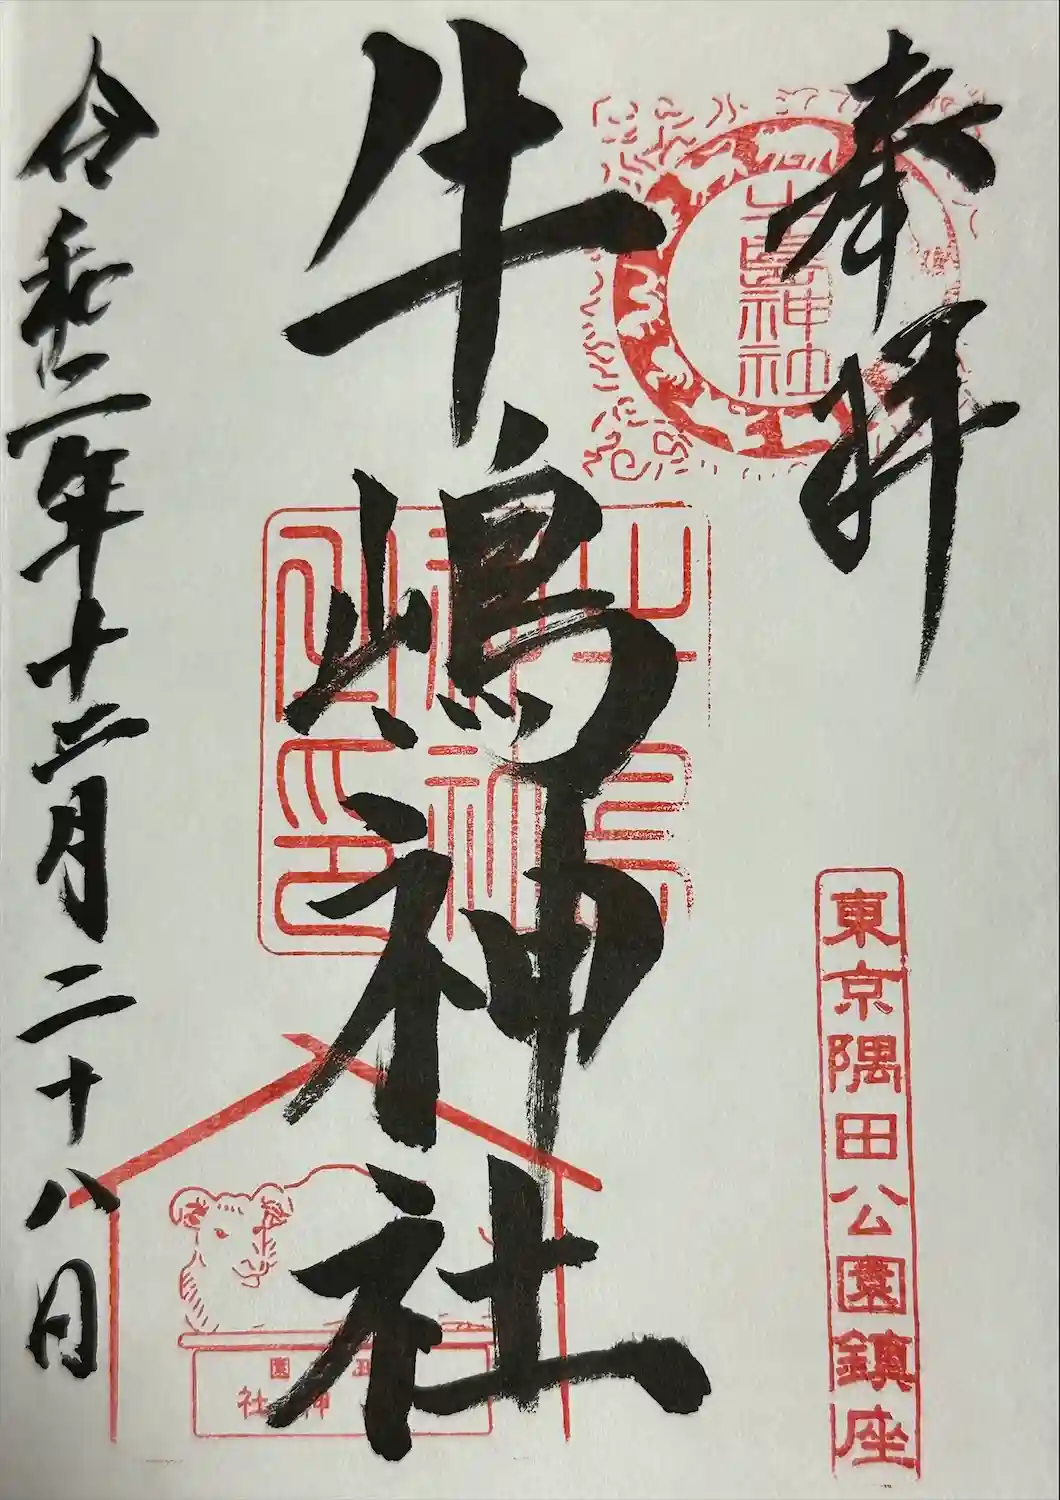 奉拝
牛島神社
東京隅田公園鎮座
牛嶋神社
令和二年十二月二十八日